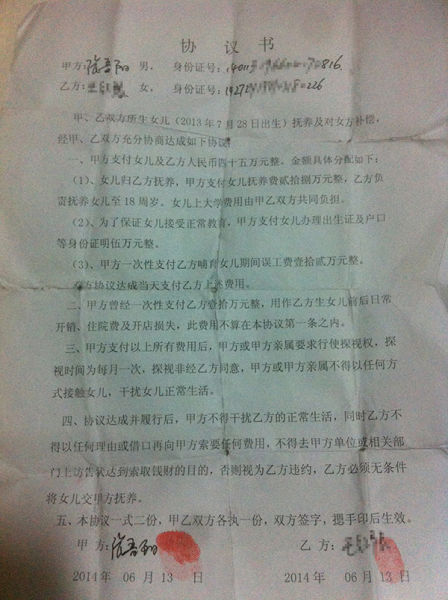 协 议 书
甲方: 阳 男, 身份证号: 816
乙方: 女, 身份证号: 226
甲、乙双方所生女儿(2013年7月28日出生)抚养及对女方补偿,
经甲、乙双方充分协商达成如下协议:
一、甲方支付女儿及乙方人民币四十五万元整。金额具体分配如下:
(1)、女儿归乙方抚养,甲方支付女儿抚养费贰拾捌万元整,乙方负
责抚养女儿至18周岁。女儿上大学费用由甲乙双方共同负担。
(2)、为了保证女儿接受正常教育,甲方支付女儿办理出生证及户口
等身份证明伍万元整。
(3)、甲方一次性支付乙方哺育女儿期间误工费壹拾贰万元整。
方协议达成当天支付乙方上述费用。
二、甲方曾经一次性支付乙方壹拾万元整,用作乙方生女儿前后日常
开销、住院费及开店损失,此费用不算在本协议第一条之内。
三、甲方支付以上所有费用后,甲方或甲方亲属要求行使探视权,探
视时间为每月一次,探视非经乙方同意,甲方或甲方亲属不得以任何方
式接触女儿,干扰女儿正常生活。
四、协议达成并履行后,甲方不得干扰乙方的正常生活,同时乙方不
得以任何理由或借口再向甲方索要任何费用,不得去甲方单位或相关部
门上访告状达到索取钱财的目的,否则视为乙方违约,乙方必须无条件
将女儿交甲方抚养。
五、本协议一式二份,甲乙双方各执一份,双方签字,摁手印后生效。
甲 方: 乙 方:
2014年 06月13 日 2014年 06月13 日